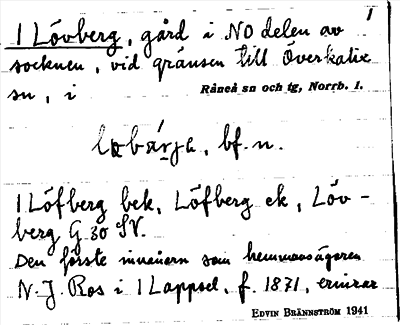 1
1 Lövberg, gård i NO delen av
socknen, vid gränsen till Överkalix
sn, i
Råneå sn och tg, Norrb. l.
bf. n.
1 Löfberg bek, Löfberg ek, Löv-
berg G 30 SV.
Den förste innehavern som hemmansägaren
N. J. Ros i 1 Lappsel, f. 1871, erinrar
EDVIN BRÄNNSTRÖM 1941